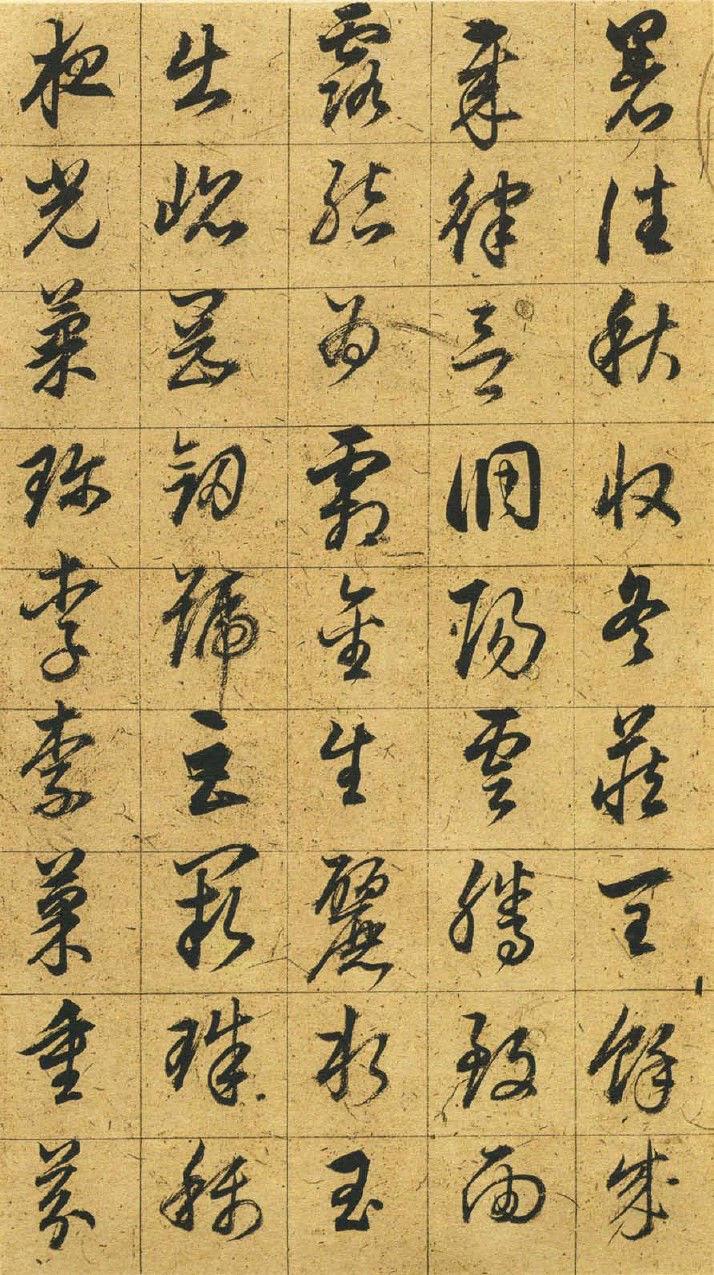 暑往秋收冬藏閏餘成
歲律呂調陽雲騰致雨
露結為霜金生麗水玉
出崐崗劍號巨闕珠稱
夜光菓珎李柰菜重芥